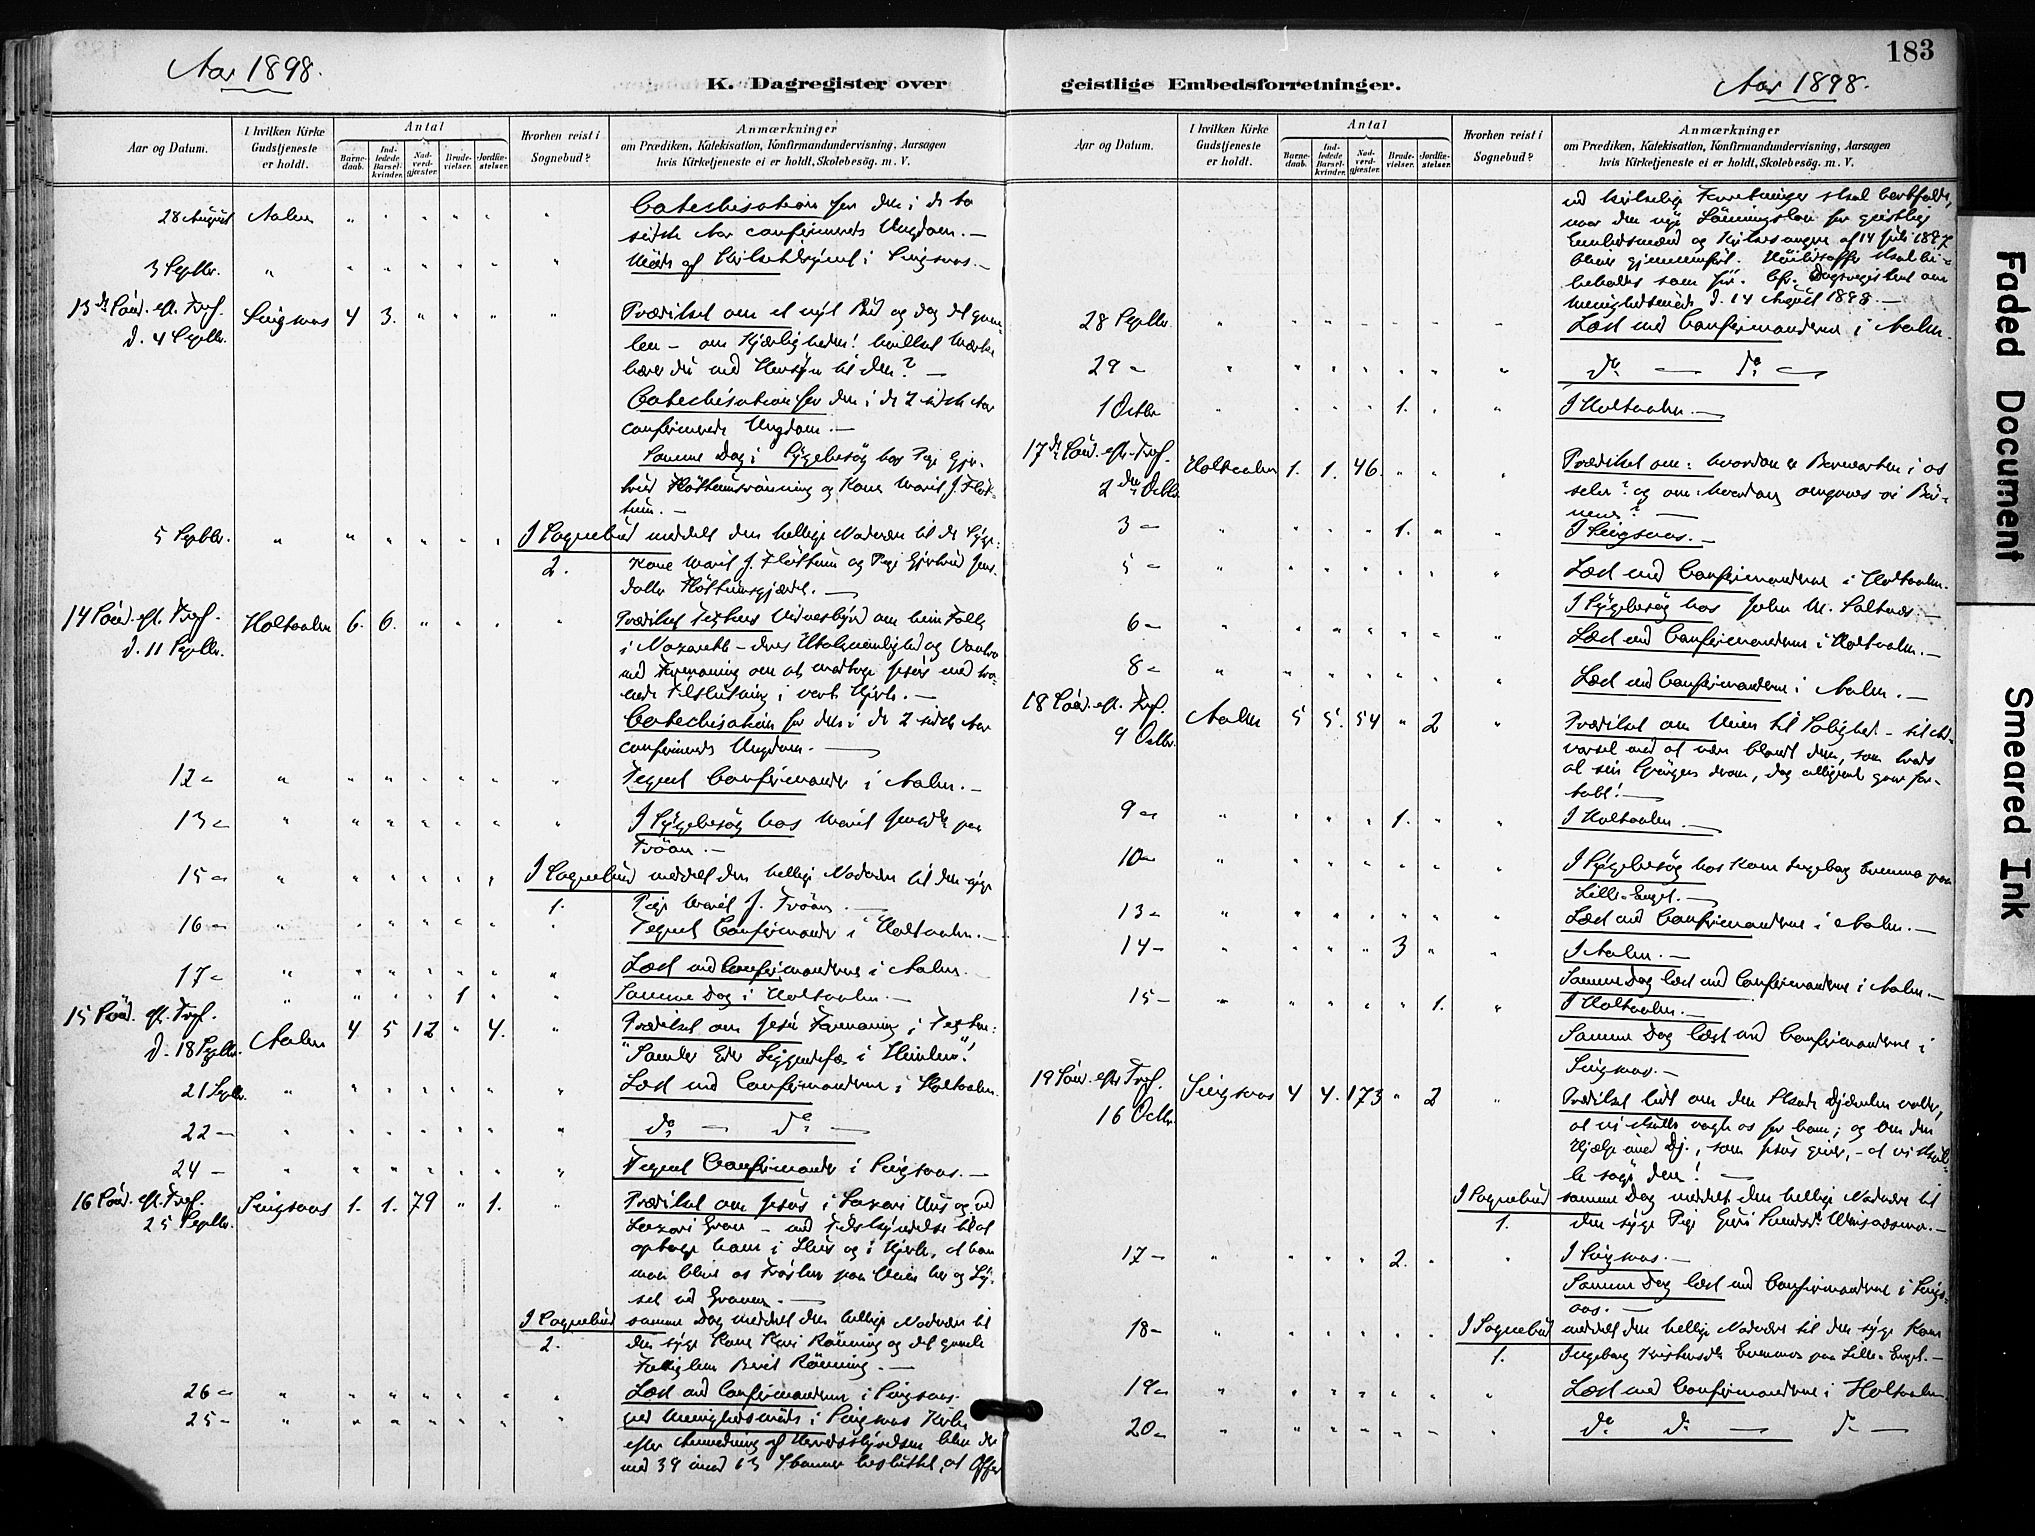 183
Aar 1898.
K. Dagregister over geistlige Embedsforretninger.
Aar 1898.
Aar og Datum.
I hvilken Kirke Gudstjeneste er holdt.
Antal
Barnedaab.
Indledede Barselkvinder.
Nadverdgjæster.
Brudevielser.
Jordfæstelser.
Hvorhen reist i Sognebud?
Anmærkninger
om Prædiken, Katekisation, Konfirmandundervisning, Aarsagen
hvis Kirketjeneste ei er holdt, Skolebesøg. m. V.
28 August Aalen " " " " " " Catechisation for den i de to
sidste Aar confirmerede Ungdom. —
3 Septbr. " " " " " " " Møde af Skilsmisse i Singsaas. —
13de Sønd. eft. Tref. Singsaas 4 3. " " " " Prædiket om et nyt Bud og dog det gam-
d. 4 Septbr. len — om Kjærligheden! hvilket Mærke
bærer du med Hensyn til den? —
Catechisation for den i de 2 sidste Aar
confirmerede Ungdom. —
Samme Dag i Sygebesøg hos Pige Gjer-
trud og Kone Marit J. Fløt-
tum. —
5 Septbr. " " " " " " I Sognebud meddelt den hellige Nadvere til de Syge:
2. Kone Marit J. Fløttum og Pige Gjertrud Jens-
datter Fløttumsgjærdet. —
14 Sønd. eft. Tref. Holtaalen 6. 6. " " " " Prædiket om sine Folk
d. 11 Septbr. i Nazareth — deres og Vantro
med Formaning om at modtage Jesus med
Tilslutning i vort Hjerte. —
Catechisation for den i de 2 sidste Aar
confirmerede Ungdom. —
12 — " " " " " " " Tegnet Confirmander i Aalen. —
13 — " " " " " " " I Sygebesøg hos Marit paa
Trøan. —
15 — " " " " " " I Sognebud meddelt den hellige Nadvere til den syge
1. Pige Marit J. Trøan. —
16 — " " " " " " " Tegnet Confirmander i Holtaalen. —
17 — " " " " " " " Læst med Confirmanderne i Aalen. —
" " " " 1 " " Samme Dag i Holtaalen. —
15 Sønd. eft. Tref. Aalen 4 5 12 " 4. " Prædiket om Jesu Formaning i Texten:
d. 18 Septbr. "Samler Eder Liggendefæ i Himlen"!
21 Septbr. " " " " " " " Læst med Confirmanderne i Holtaalen.
22 — " " " " " " " do. — do. —
24 — " " " " " " " Tegnet Confirmander i Singsaas. —
16 Sønd. eft. Tref. Singsaas 1. 1. 79 " 1. " Prædiket om Jesus i Lazari Hus og ved
25 Septbr. Lazari Grav — med Tilskyndelse til at
optage ham i Hus og i Hjerte, at han
maa blive os Trøster paa Veien her og Ly-
set ved Graven. —
I Sognebud samme Dag meddelt den hellige Nadvere til
2. den syge Kone Kari Rønning og det gamle
Fattiglem Berit Rønning. —
26 — " " " " " " " Læst med Confirmanderne i Singsaas.
25 — " " " " " " " Ved Menighedsmøde i Singsaas Kirke
efter Anmodning af Herredsstyrelsen blev det
med 39 imod 13 Stemmer besluttet, at Offer
Aar og Datum.
I hvilken Kirke Gudstjeneste er holdt.
Antal
Barnedaab.
Indledede Barselkvinder.
Nadverdgjæster.
Brudevielser.
Jordfæstelser.
Hvorhen reist i Sognebud?
Anmærkninger
om Prædiken, Katekisation, Konfirmandundervisning, Aarsagen
hvis Kirketjeneste ei er holdt, Skolebesøg. m. V.
ved kirkelige Forretninger skal bortfalde,
naar den nye Lønningslov for geistlige
Embedsmænd og Kirkesangere af 14 Juli 1897
bliver gjennemført. Høitidsoffer skal bi-
beholdes som før. Cfr. Dagsregistret om
Menighedsmøde d. 14 August 1898. —
28 Septbr. " " " " " " " Læst med Confirmanderne i Aalen.
29 — " " " " " " " do. — do. —
1 Octbr. " " " " 1. " " I Holtaalen. —
17de Sønd. eft. Tref. Holtaalen 1. 1. 46. " " " Prædiket om: hvordan er Barnearten i os
2den Octbr. selv? og om: hvordan omgaaes vi Bør-
nene? —
3 — " " " " 1. " " I Singsaas. —
5 — " " " " " " " Læst med Confirmanderne i Holtaalen.
I Sygebesøg hos John M. Saltnes. —
6 — " " " " " " " Læst med Confirmanderne i Holtaalen. —
8 — " " " " " " " Læst med Confirmanderne i Aalen. —
18 Sønd. eft. Tref. Aalen 5 5. 54 " 2 " Prædiket om Veien til Salighed — til Ad-
9 Octbr. varsel med at være blandt dem, som
al sin drom, dog alligevel gaar for-
tabt! —
9 — " " " " 1. " " I Holtaalen. —
10 — " " " " " " " I Sygebesøg hos Kone Ingeborg Evenmo paa
Lille-Enget. —
13 — " " " " " " " Læst med Confirmanderne i Aalen. —
14 — " " " " 3 " " I Aalen. —
Samme Dag læst med Confirmanderne i Aalen. —
15 — " " " " " 1. " I Holtaalen. —
Samme Dag læst med Confirmanderne i
Singsaas. —
19 Sønd. eft. Tref. Singsaas 4 4. 173 " 2 " Prædiket lidt om den Skade Djævelen volder,
16 Octbr. at vi skulle vogte os for ham; og om den
Hjælp imod Dj., som Jesus giver, — at vi skul-
le søge den! —
I Sognebud samme Dag meddelt den hellige Nadvere til
1. den syge Pige Guri —
17 — " " " " 2. " " I Singsaas. —
Samme Dag læst med Confirmanderne i Sings-
aas. —
18 — " " " " " " I Sognebud meddelt den hellige Nadvere til den syge Kone
1. Ingeborg Evenmo paa Lille-Enget. —
19 — " " " " " " " Læst med Confirmanderne i Holtaalen.
20 — " " " " " " " do. do. — do. —
Faded Document
Smeared Ink